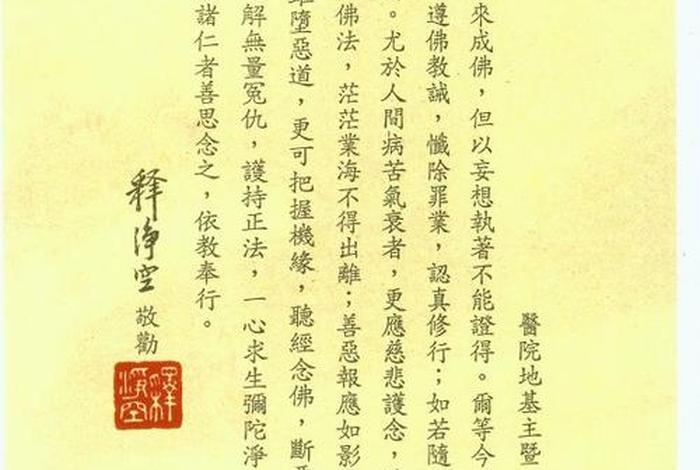 醫院地基主暨
來成佛，但以妄想執著不能證得。爾等今
遵佛教誡，懺除罪業，認真修行；如若隨
。尤於人間病苦氣衰者，更應慈悲護念，
佛法，茫茫業海不得出離；善惡報應如影
墮惡道，更可把握機緣，聽經念佛，斷
解無量冤仇，護持正法，一心求生彌陀淨
諸仁者善思念之，依教奉行。
释淨空
敬勸
釋淨空